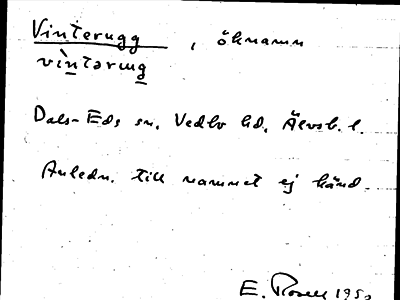 Vinterugg, öknamn
vìntərug
Dals-Eds sn. Vedbo hd. Älvsb. l.
Anledn. till namnet ej känd.
E.